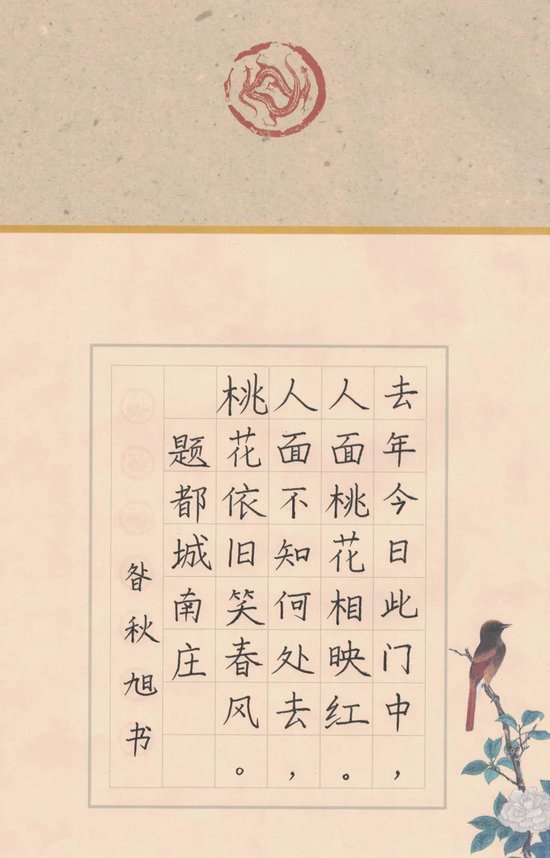 去年今日此门中，
人面桃花相映红。
人面不知何处去，
桃花依旧笑春风。
题都城南庄
昝秋旭书